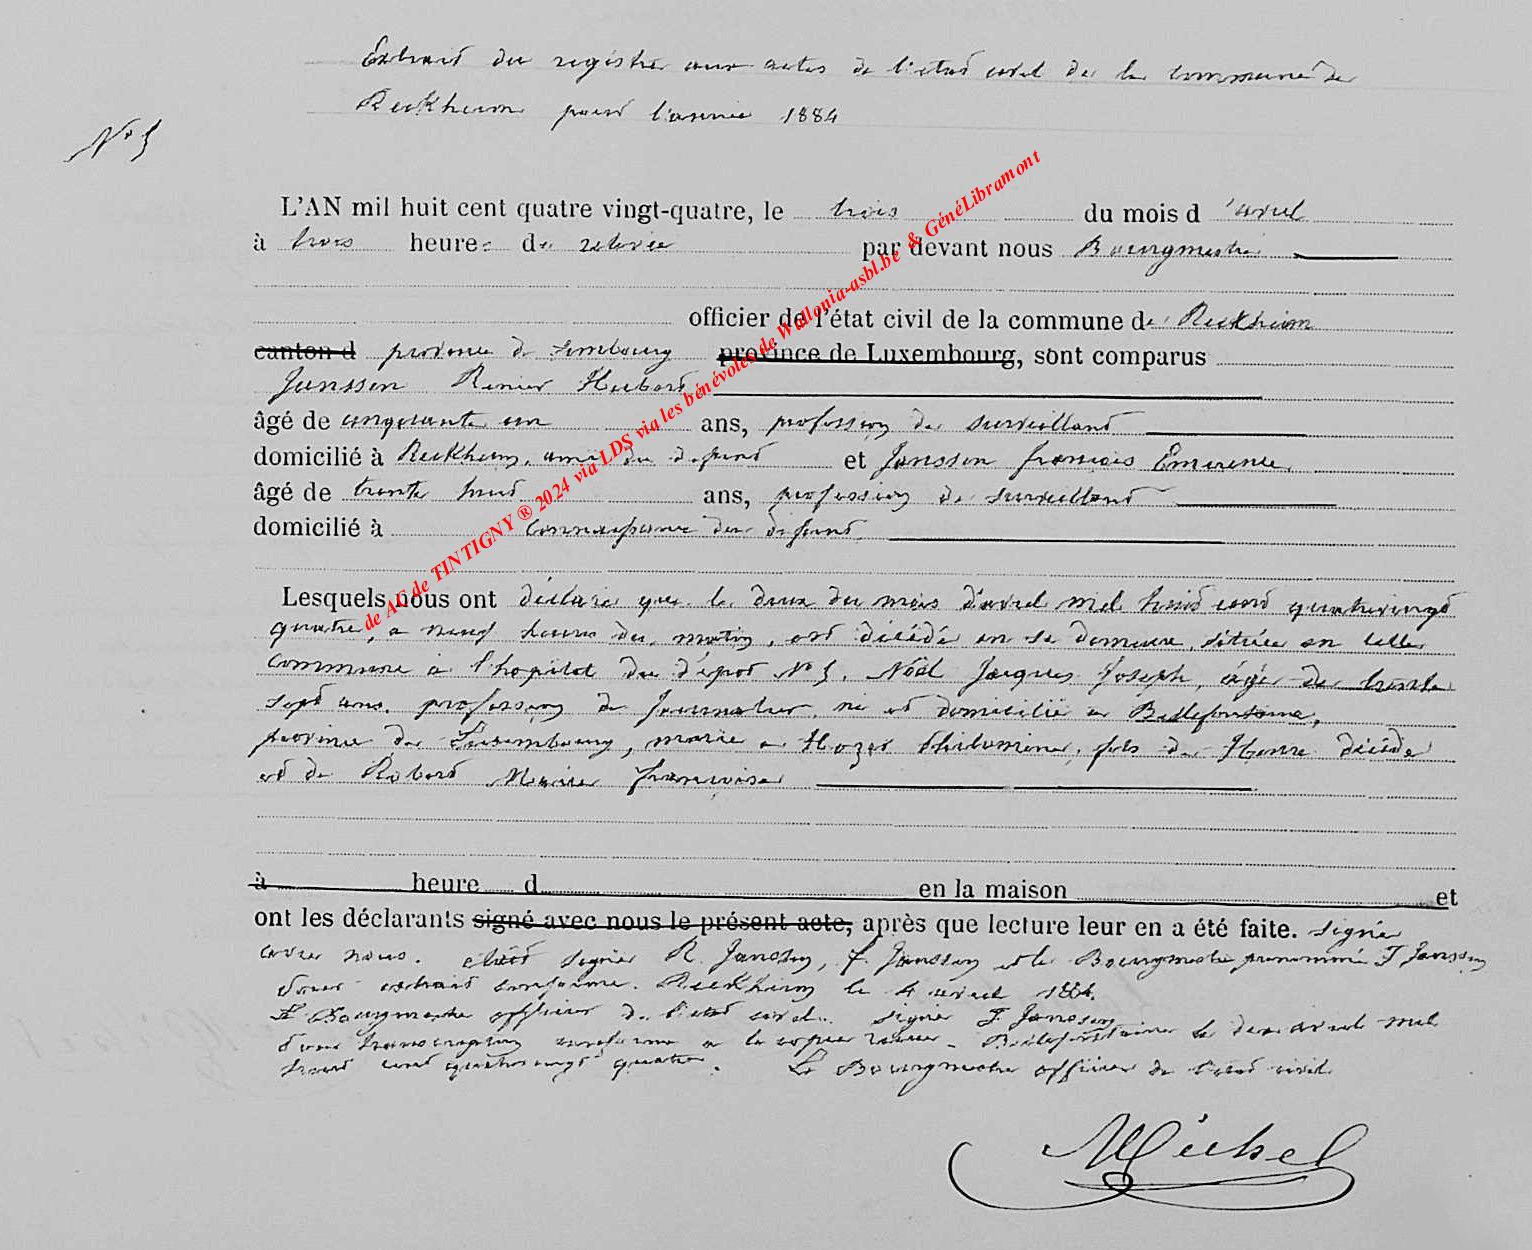 Extrait du registre aux actes de l'etat civil de la commune de
Reckheim pour l'année 1884
N° 5
L'AN mil huit cent quatre vingt-quatre, le trois du mois d'avril
à trois heures de relevée par devant nous Bourgmestre
officier de l'état civil de la commune de Reckheim
canton d province de Limbourg province de Luxembourg, sont comparus
Janssen Renier Hubert
âgé de cinquante un ans, profession de surveillant
domicilié à Reckheim, ami du défunt et Janssen François Emerence
âgé de trente huit ans, profession de surveillant
domicilié à connaissance du défunt
Lesquels nous ont déclaré que le deux du mois d'avril mil huit cent quatrevingt
quatre, a neuf heures du matin, est décédé en sa demeure, située en cette
commune à l'hopital du dépot N° 5, Noël Jacques Joseph, âgé de trente
sept ans, profession de Journalier, né et domicilié a Bellefontaine,
province de Luxembourg, marié a Hozet Philomine, fils de Henri décédé
et de Robert Marie françoise
à heure d en la maison et
ont les déclarants signé avec nous le présent acte, après que lecture leur en a été faite. signé
avec nous. était signé R. Janssen, f. Janssen et le Bourgmestre prénommé J Janssen
Pour extrait conforme. Reckheim le 4 avril 1884.
Le Bourgmestre officier de l'état civil. signé J. Janssen
Pour transcription conforme a la copie Bellefontaine le avril mil
huit cent quatrevingt quatre. Le Bourgmestre officier de l'état civil
Michel
de AC de TINTIGNY ® 2024 via LDS via les bénévoles de Wallonia-asbl.be & GénéLibramont